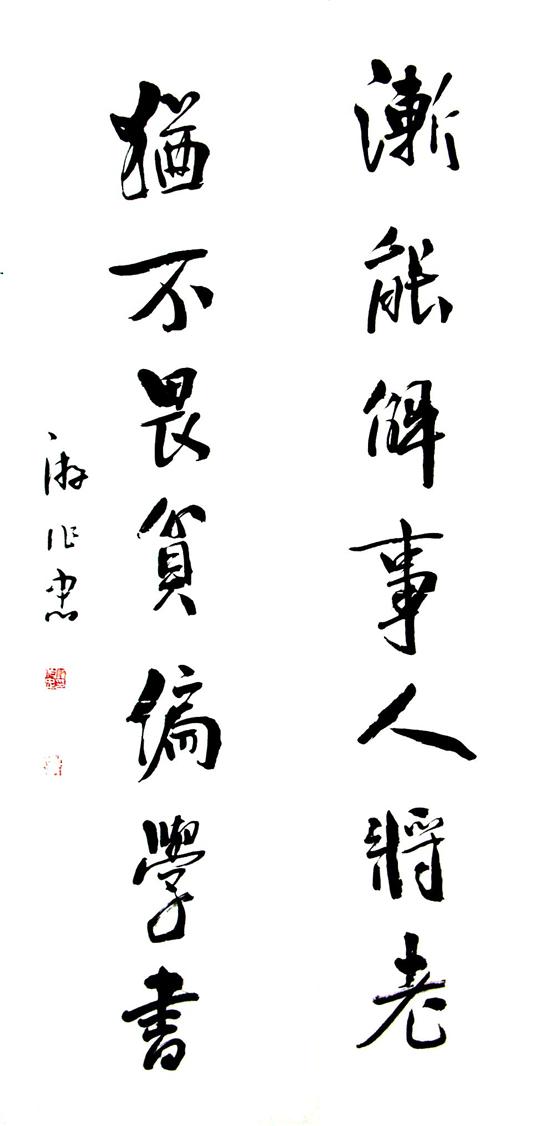 漸能解事人將老
猶不畏貧偏學書
游作忠